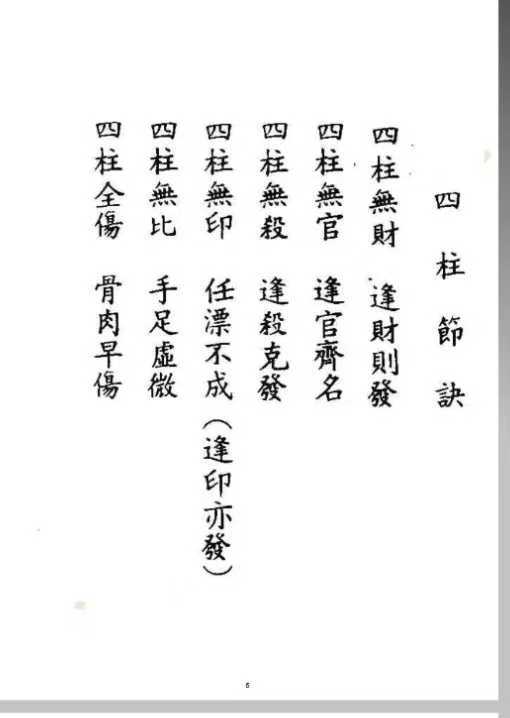 四柱節訣
四柱無財 逢財則發
四柱無官 逢官齊名
四柱無殺 逢殺克發
四柱無印 任漂不成(逢印亦發)
四柱無比 手足虛微
四柱全傷 骨肉早傷
6